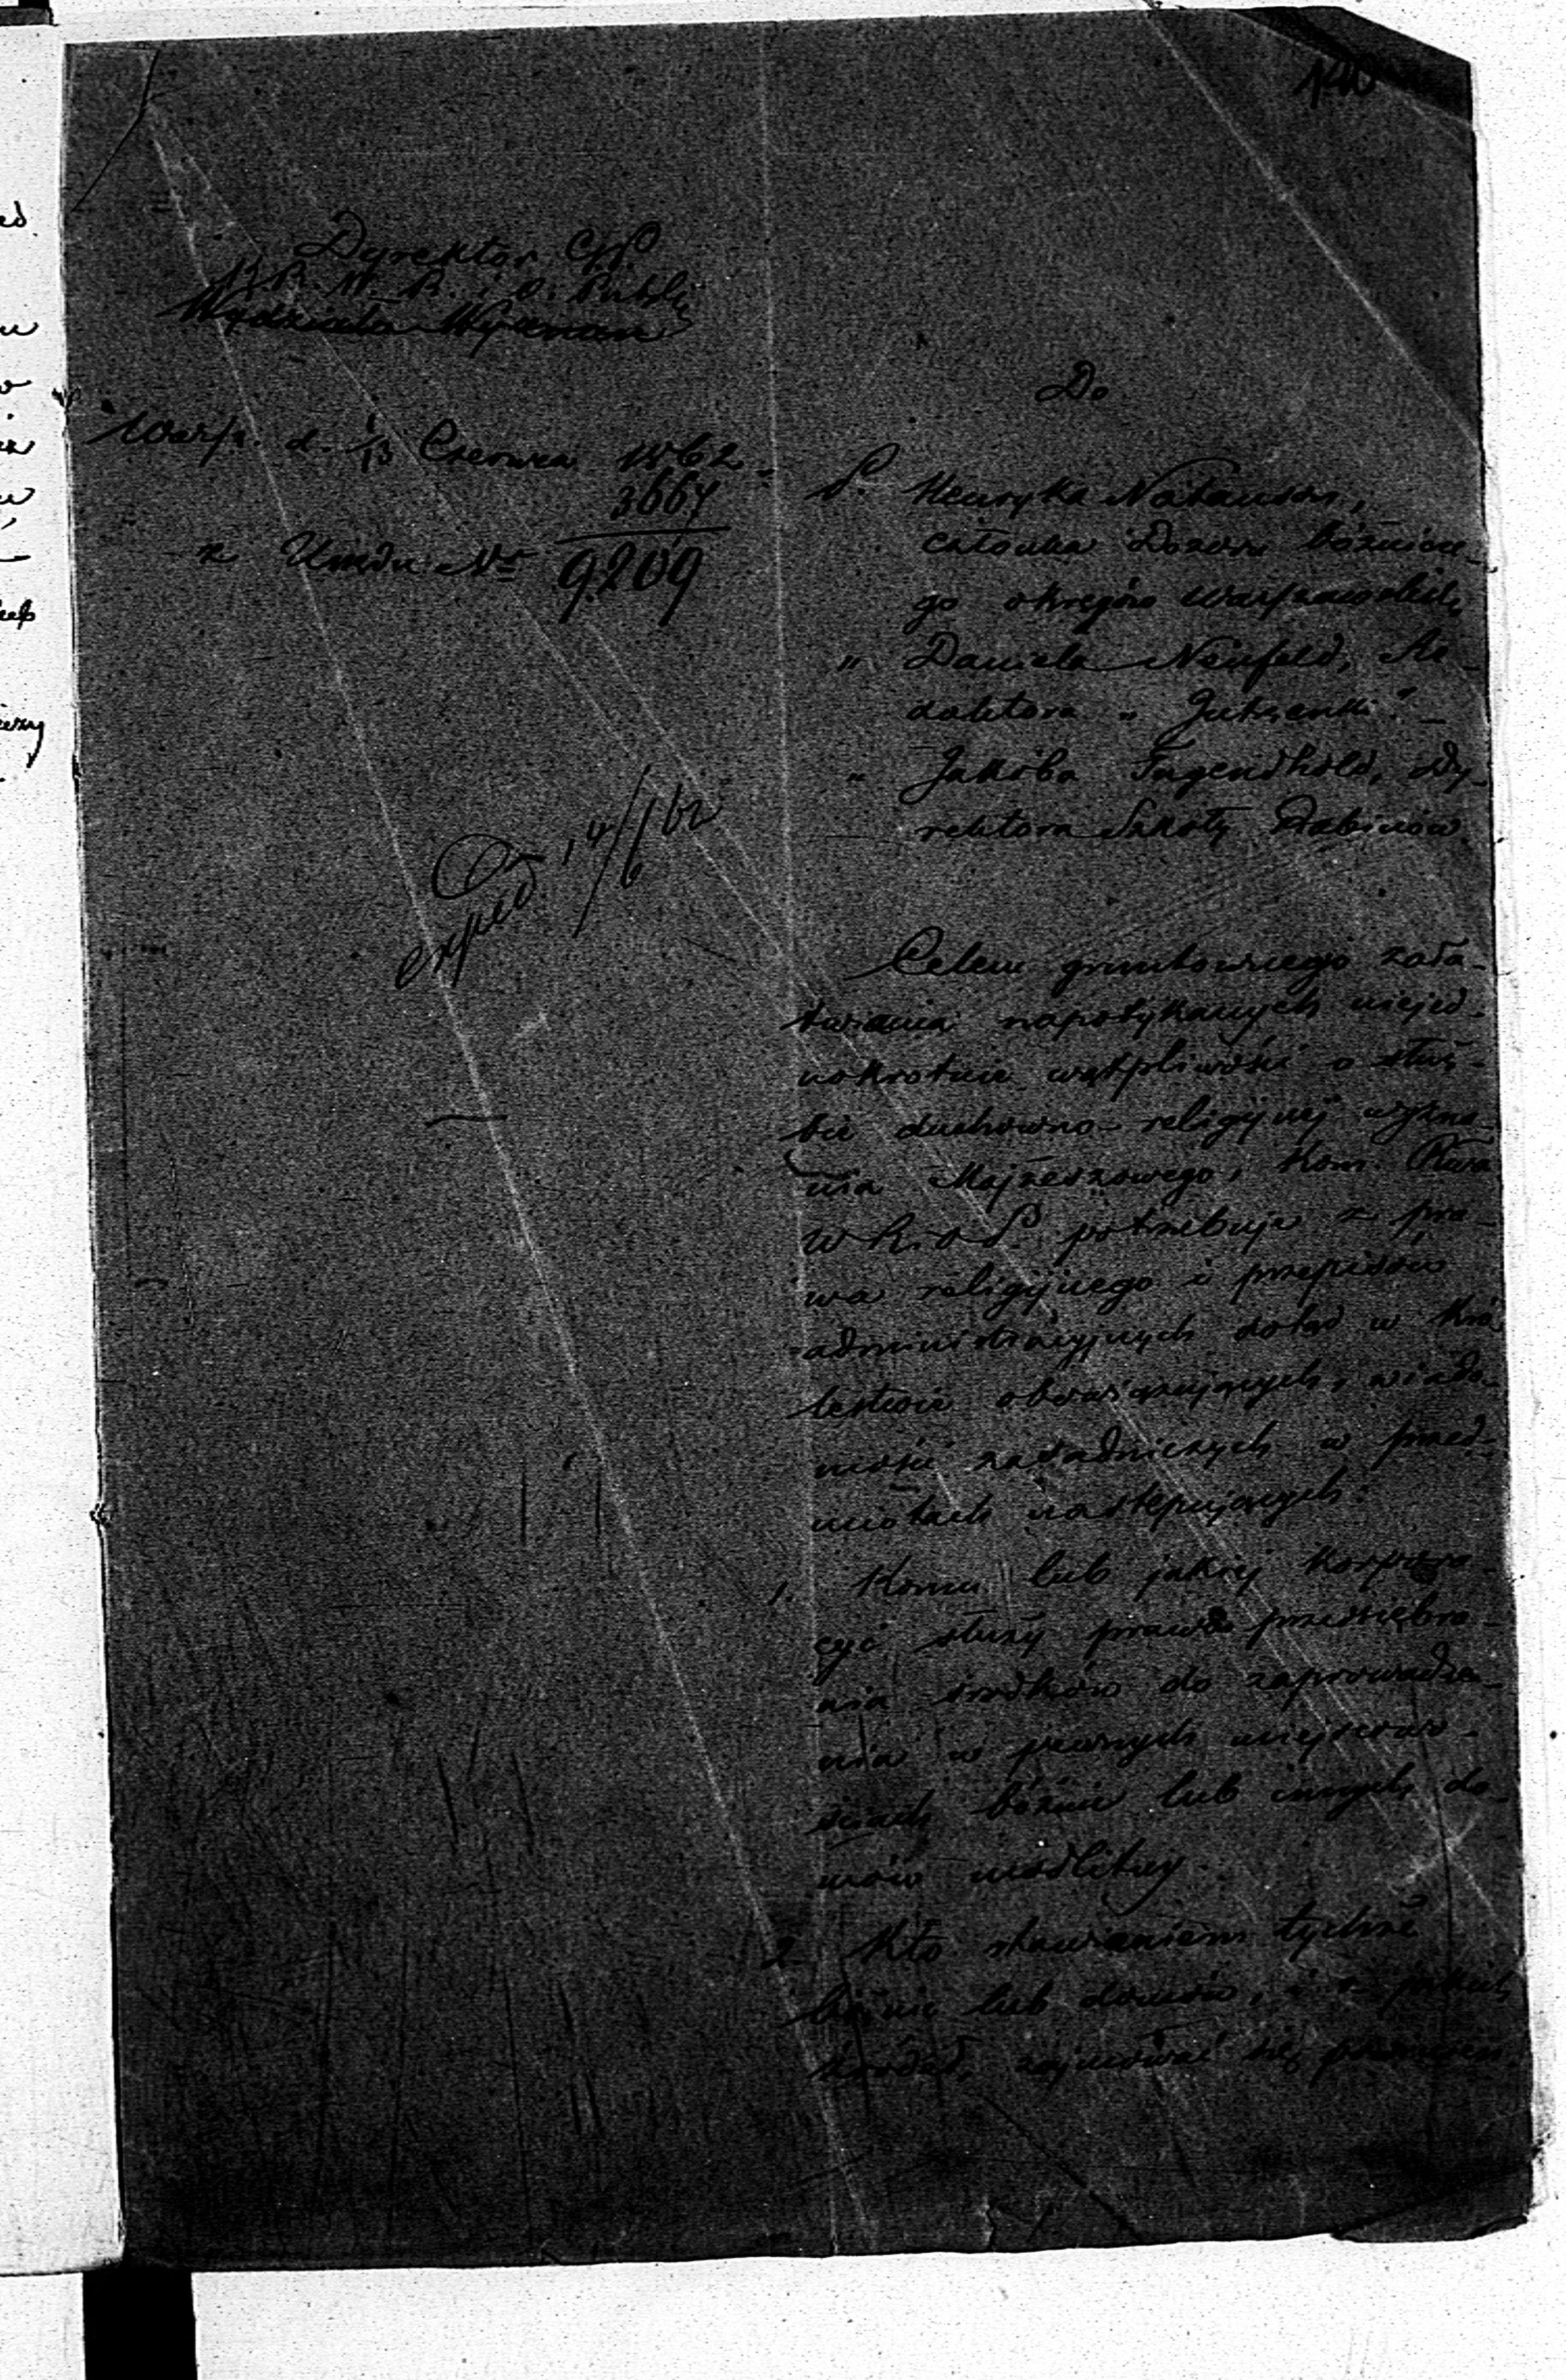 140
Dyrektor Gł.
K. R. W. R. i O. Publ.
Wydziału Wyznań
Warsz. d. 1/13 Czerwca 1862.
3664
z Urzędu Nr 9209
exped. 14/6 62
Do
P. Henryka Natanson,
członka Dozoru bóżnicze-
go okręgów Warszawskich,
" Daniela Neufeld, Re-
daktora „Jutrzenki" –
" Jakóba Tugendhold, Dy-
rektora Szkoły Rabinów
Celem gruntownego zała-
twiania napotykanych niejed-
nokrotnie wątpliwości o służ-
bie duchowno-religijnej wyzna-
nia Mojżeszowego, Kom. Rząd.
W. R. i O. P. potrzebuje z pra-
wa religijnego i przepisów
administracyjnych dotąd w Kró-
lestwie obowiązujących, wiado-
mości zasadniczych w przed-
miotach następujących:
1. Komu lub jakiej korpora-
cyi służy prawo przedsiębra-
nia środków do zaprowadze-
nia w pewnych miejscowo-
ściach bóżnic lub innych do-
mów modlitwy.
2. Kto stawianiem tychże
bóżnic lub domów, i z jakich
źródeł, zajmować się powinien.